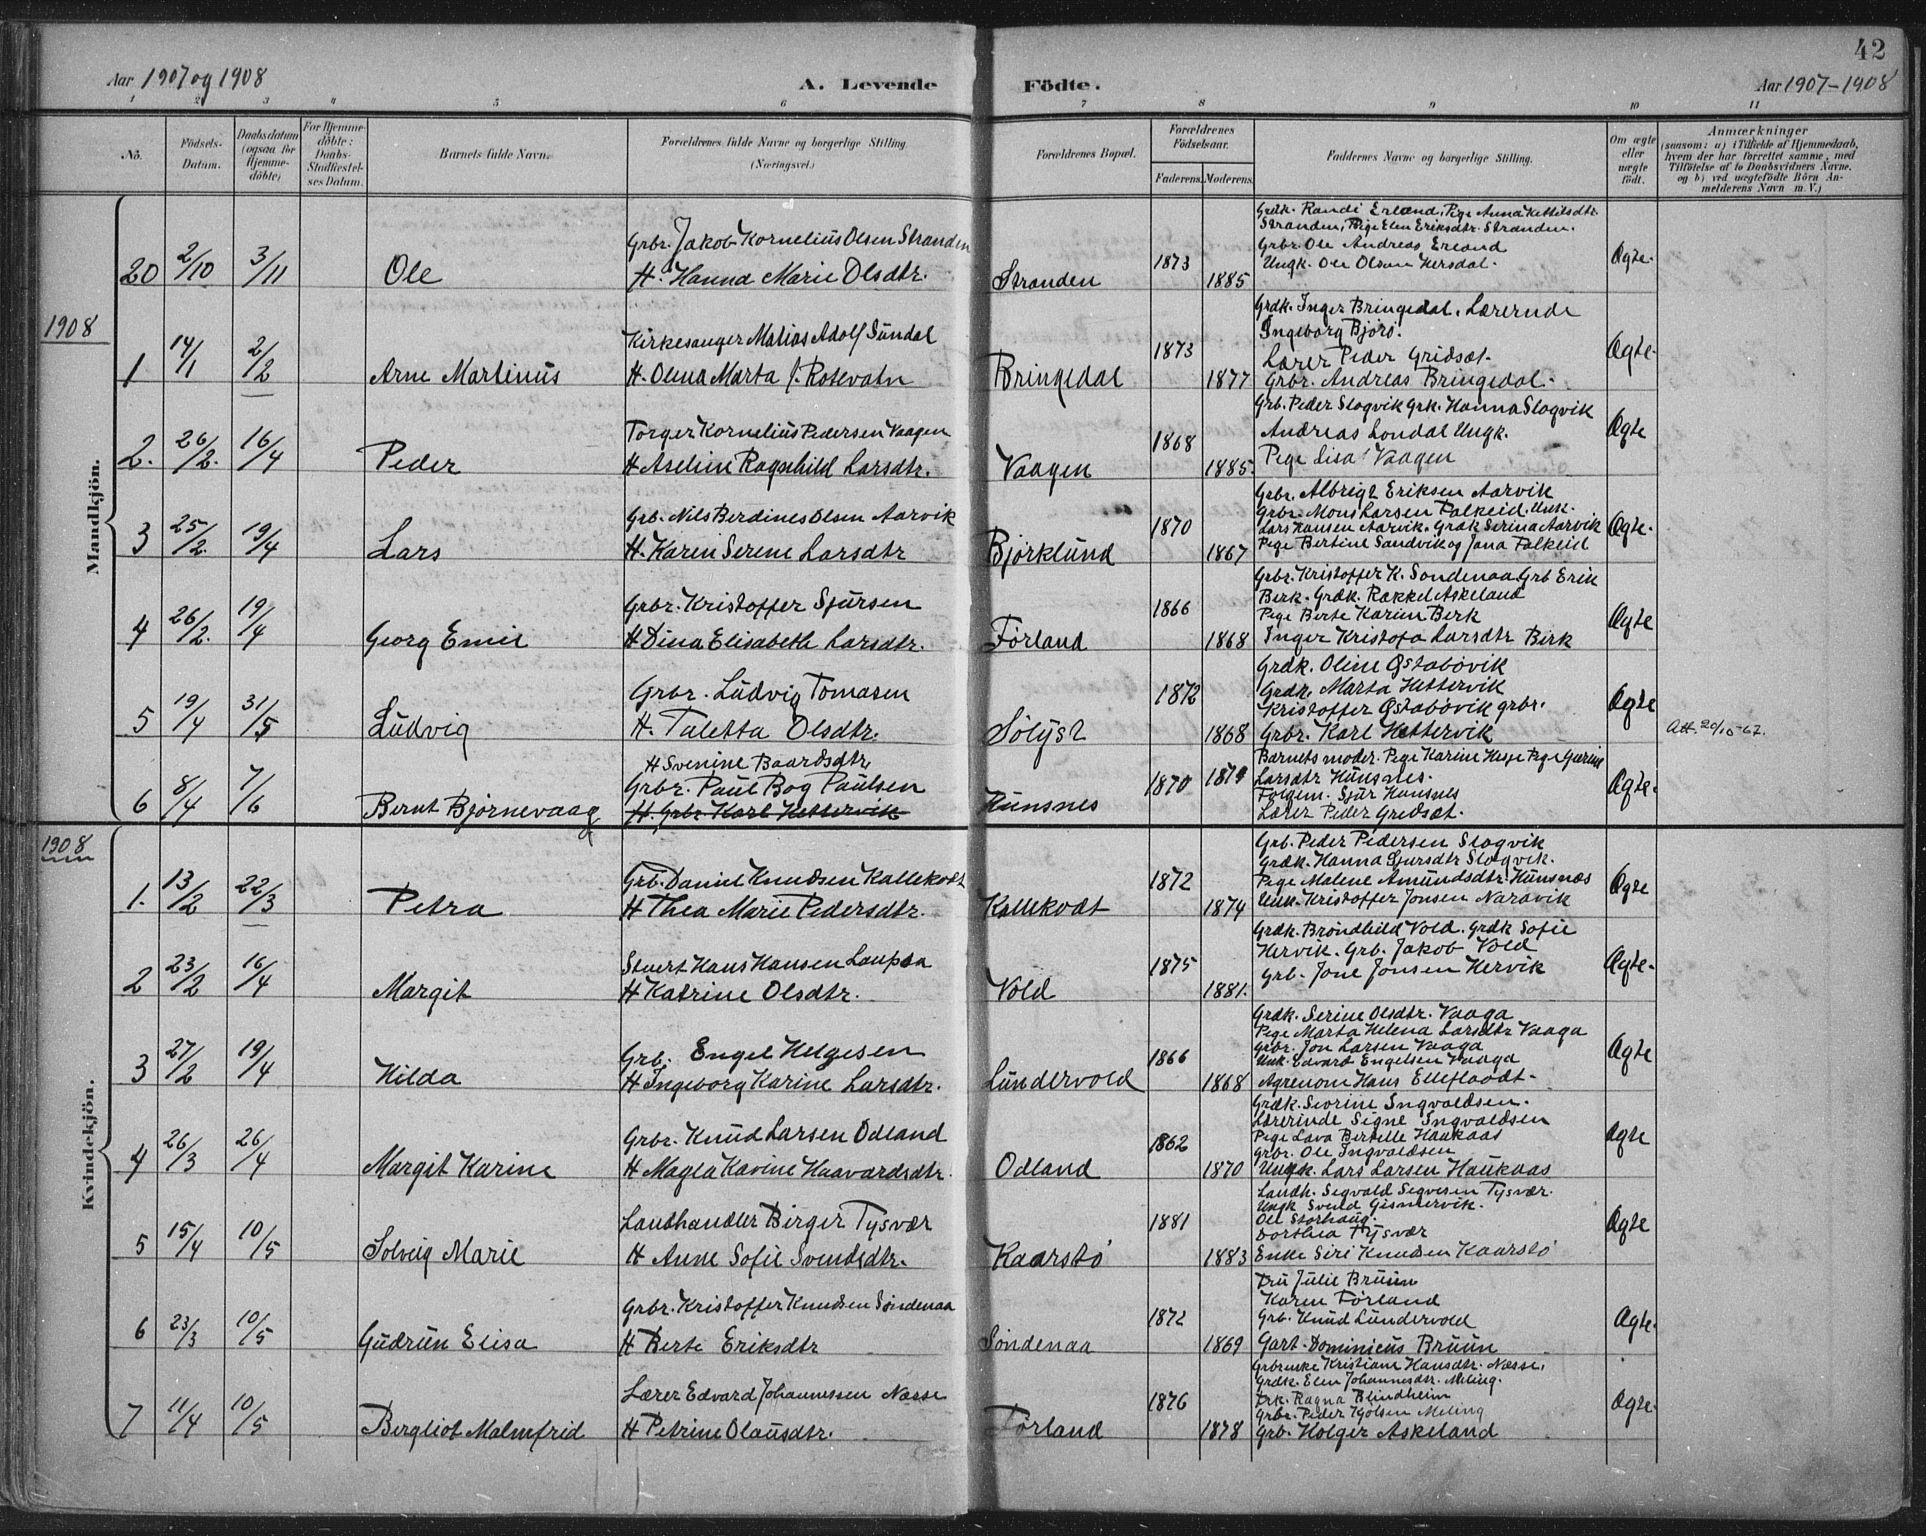 42
Aar 1907 og 1908
A. Levende
Födte.
Aar 1907-1908
1 2 3 4 5 6 7 8 9 10 11
No.
Födsels-
Datum.
Daabsdatum
(ogsaa for
Hjemme-
döbte)
For Hjemme-
döbte:
Daabs-
Stadfæstel-
ses Datum.
Barnets fulde Navn.
Forældrenes fulde Navne og borgerlige Stilling.
(Næringsvei.)
Forældrenes Bopæl.
Forældrenes
Födselsaar.
Faderens. Moderens.
Faddernes Navne og borgerlige Stilling.
Om ægte
eller
uægte
födt.
Anmærkninger
(saasom: a) i Tilfælde af Hjemmedaab,
hvem der har forrettet samme, med
Tilföielse af to Daabsvidners Navne.
og b) ved uægtefödte Börn An-
melderens Navn m. V.)
Mandkjön.
20 2/10 3/11 Ole
Grbr. Jakob Kornelius Olsen Stranden
H. Hanna Marie Olsdtr.
Stranden
1873
1885
Grdk. Randi Erland, Pige Anna Kettilsdtr.
Stranden, Pige Elen Eriksdtr. Stranden.
Grbr. Ole Andreas Erland
Ungk. Ole Olsen Hersdal.
Ægte.
1908
1 14/1 2/2 Arne Martinus
Kirkesanger Matias Adolf Sundal
H. Olena Marta f. Rotevatn
Bringedal
1873
1877
Grdk. Inger Bringedal. Lærerinde
Ingeborg Bjoro.
Lærer Peder Gridsæt.
Grbr. Andreas Bringedal.
Ægte.
2. 26/2. 16/4 Peder
Torger Kornelius Pedersen Vaagen
H Aseline Ragnhild Larsdtr.
Vaagen
1868
1885.
Grb. Peder Slogvik Grk. Hanna Slogvik
Andreas Londal Ungk.
Pige Lisa Vaagen
Ægte
3 25/2. 19/4 Lars
Grb. Nils Berdines Olsen Aarvik
H. Karen Serene Larsdtr
Bjørklund
1870
1867
Grbr. Albrigt Eriksen Aarvik
Grbr. Mons Larsen Falkeid, Unk.
Lars Hansen Aarvik. Grdk Serina Aarvik
Pige Bertine Sandvik og Jana Falkeid
Ægte.
4 26/2. 19/4 Georg Emil
Grbr. Kristoffer Sjursen
H Dina Elisabeth Larsdtr.
Førland
1866
1868
Grbr. Kristoffer K. Sondenaa Grb Erik
Berk. Grdk. Rakkel Askeland
Pige Berte Karine Berk
Inger Kristofa Larsdtr Birk
Ægte
5 19/4 31/5 Ludvig
Grbr. Ludvig Tomasen
H. Taletta Olsdtr.
Sølyst
1872
1868
Grdk. Oline Østabövik
Grdk. Marta Hettervik
Kristoffer Østabövik grbr.
Grbr. Karl Hettervik
Ægte
Att. 20/10-62.
6 8/4 7/6 Bernt Bjørnevaag
H Svenine Baardsdtr.
Grbr. Paul Bog Paulsen
H. Grbr Karl Hettervik
Hunsnes
1870 1879
Barnets moder. Pige Karine Hege Pige Gurine
Larsdtr Hunsnes.
Folgem. Sjur Hunsnes
Lærer Peder Gredsæt.
Ægte.
Kvindekjön.
1908
1. 13/2 22/3 Petra
Grb. Daniel Knudsen Kallekodt
H Thea Marie Pedersdtr.
Kallekodt
1872
1874
Grb. Peder Pedersen Slogvik
Grdk. Hanna Sjursdtr Slogvik.
Pige Malene Amundsdtr. Hunsnæs
Unk. Kristoffer Jonsen Naravik
Ægte
2 23/2 16/4 Margit
Stuert Hans Hansen Laupsa
H Katrine Olsdtr.
Vold
1875
1881.
Grdk. Bröndhild Vold. Grdk Sofie
Hervik. Grb. Jakob Vold
Grb. Jone Jonsen Hervik
Ægte.
3 27/2 19/4 Hilda
Grb. Engel Helgesen
H Ingeborg Karine Larsdtr.
Lundervold
1866
1868
Grdk. Serine Olsdtr. Vaaga
Pige Marta Helena Larsdtr Vaaga
Grbr. Jon Larsen Vaaga
Unk. Edvard Engelsen Vaaga
Agrenom Hans
Ægte
4 26/3 26/4 Margit Karine
Grbr. Knud Larsen Odland
H Magla Karine Haavardsdtr.
Odland
1862
1870
Grdk. Seorine Ingvaldsen.
Lærerinde Signe Ingvaldsen
Pige Lava Bertelle Haukaas
Grbr. Ole Ingvaldsen
Ungk. Lars Larsen Haukaas
Ægte
5 15/4 10/5 Solveig Marie
Landhandler Birger Tysvær
H Anne Sofie Svendsdtr.
Kaarstö
1881
1883
Landh. Segvald Segvesen Tysvær.
Ungk Sveild Gismervik.
Ole Storhaug
Dorthea Tysvær
Enke Siri Knudsen Kaarstö
Ægte
6 23/3 10/5 Gudrun Elisa
Grbr. Kristoffer Knudsen Søndenaa
H Berte Eriksdtr
Søndenaa
1872
1869
Fru Julie Bruun
Karen Førland
Grb. Knud Lundervold
Gart. Dominicus Bruun
Ægte.
7 11/4 10/5 Bergliot Malmfrid
Lærer Edvard Johannessen Næsse
H Petrine Olausdtr.
Førland
1876
1878
Grbrenke Kristiane Hansdtr. Næsse.
Grdk. Elen Johannesdtr. Meling.
Frk. Ragna Blindheim
Grbr. Peder Kjolsen Meling
Grb. Holger Askeland
Ægte.